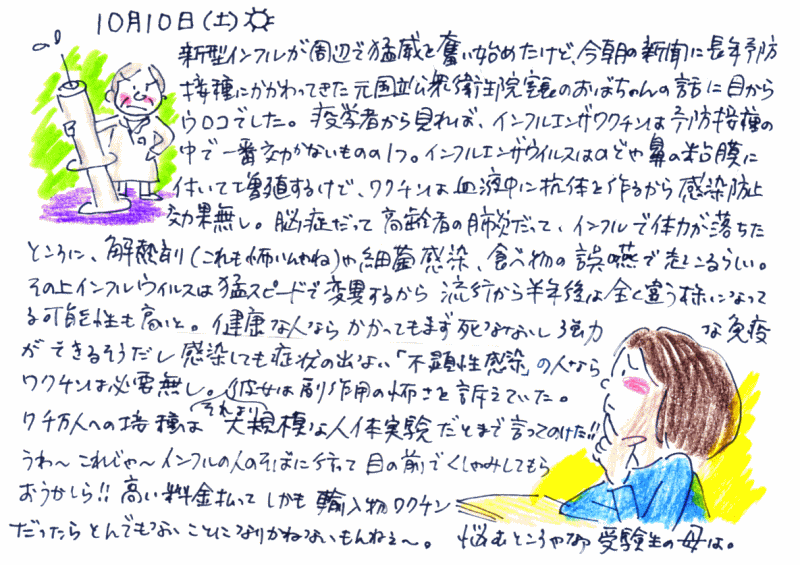 10月10日(土)
新型インフルが周辺で猛威を奮い始めたけど、今朝の新聞に長年予防
接種にかかわってきた元国立公衆衛生院室長のおばちゃんの話に目から
ウロコでした。疫学者から見れば、インフルエンザワクチンは予防接種の
中で一番効かないものの1つ。インフルエンザウイルスはのどや鼻の粘膜に
付いて増殖するけど、ワクチンは血液中に抗体を作るから感染防止
効果無し。脳症だって高齢者の肺炎だって、インフルで体力が落ちた
ところに、解熱剤(これも怖いんやね)や細菌感染、食べ物の誤嚥で起こるらしい。
その上インフルウイルスは猛スピードで変異するから流行から半年後は全く違う株になって
る可能性も高いと。健康な人ならかかってもまず死なないし強力な免疫
ができるそうだし感染しても症状の出ない「不顕性感染」の人なら
ワクチンは必要無し。彼女は副作用の怖さを訴えていた。
ワチ万人への接種は それより 大規模な人体実験だとまで言ってのけた!!
うわ〜これじゃ〜インフルの人のそばに行って目の前でくしゃみしてもら
おうかしら!!高い料金払ってしかも輸入物ワクチン
だったらとんでもないことになりかねないもんねぇ〜。 悩むところやなぁ受験生の母は。